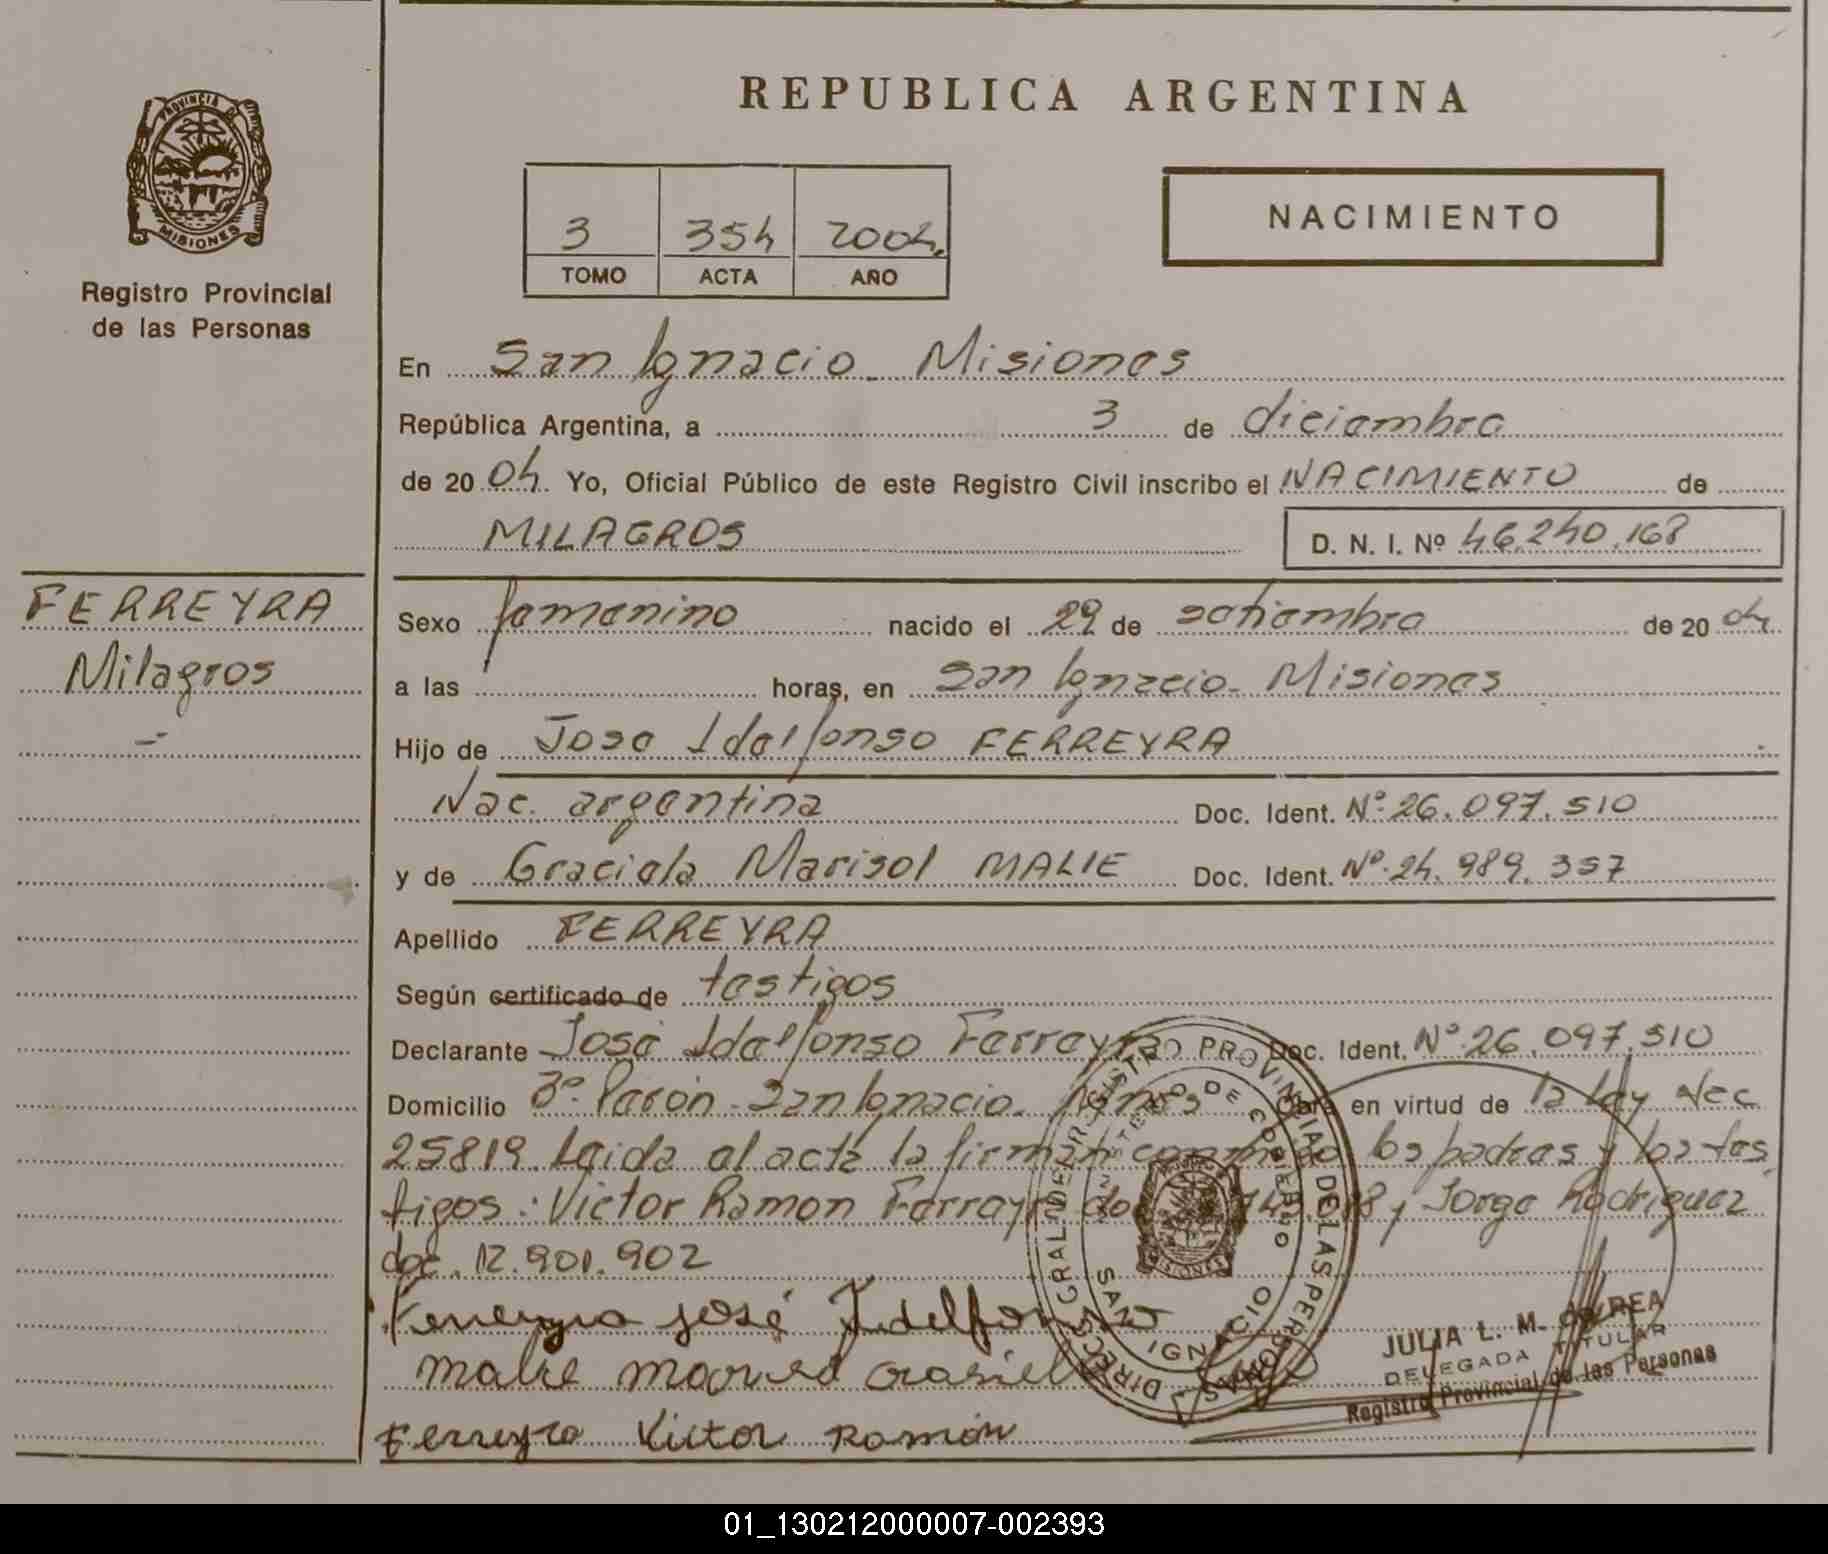 REPUBLICA ARGENTINA
PROVINCIA DE
MISIONES
Registro Provincial
de las Personas
3 354 2004.
TOMO ACTA AÑO
NACIMIENTO
En San Ignacio - Misiones
República Argentina, a 3 de diciembre
de 20 04. Yo, Oficial Público de este Registro Civil inscribo el NACIMIENTO de
MILAGROS D. N. I. Nº 46.240.168
FERREYRA
Milagros
-
Sexo femenino nacido el 29 de setiembre de 20 04
a las horas, en San Ignacio - Misiones
Hijo de Jose Idelfonso FERREYRA
Nac. argentina Doc. Ident. Nº 26.097.510
y de Graciela Marisol MALIE Doc. Ident. Nº 24.989.357
Apellido FERREYRA
Según certificado de testigos
Declarante José Idelfonso Ferreyra Doc. Ident. Nº 26.097.510
Domicilio Bº. San Ignacio - Obra en virtud de la Ley Nec
25819. Leida el acta la firman conmigo los padres y los tes
tigos: Victor Ramon Ferreyra y Jorge Rodriguez
doc. 12.901.902
Ferreyra José Idelfonso
Malie
Ferreyra Victor Ramón
DIRECC. GRAL. DEL REGISTRO PROVINCIAL DE LAS PERSONAS
MINISTERIO DE GOBIERNO
SAN IGNACIO
MISIONES
JULIA L. M. CORREA
DELEGADA TITULAR
Registro Provincial de las Personas
01_130212000007-002393